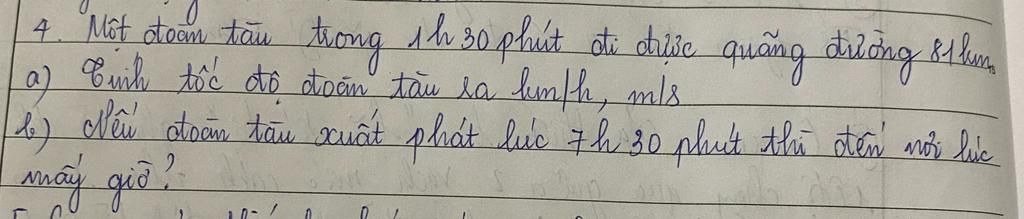 4. Một đoàn tàu trong 1h 30 phút đi được quãng đường 81 km.
a) Tính tốc độ đoàn tàu ra km/h, m/s
b) Nếu đoàn tàu xuất phát lúc 7h 30 phút thì đến nơi lúc
mấy giờ?